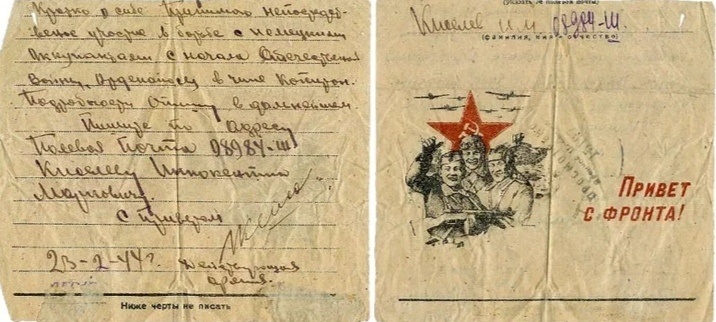 Кратко о себе Принимаю непосредст-
венное участие в борьбе с немецкими
оккупантами с начала Отечественной
Войны. Орденоносец в чине
Подробности Опишу в дальнейшем
Пишите по адресу
Полевая Почта 08984-Ш
Киселеву Иннокентию
С приветом
23-2-44 г. Действующая
армия.
Ниже черты не писать
Киселев И.М 08984-Ш.
(фамилия, имя и отчество)
ПРИВЕТ
С ФРОНТА!